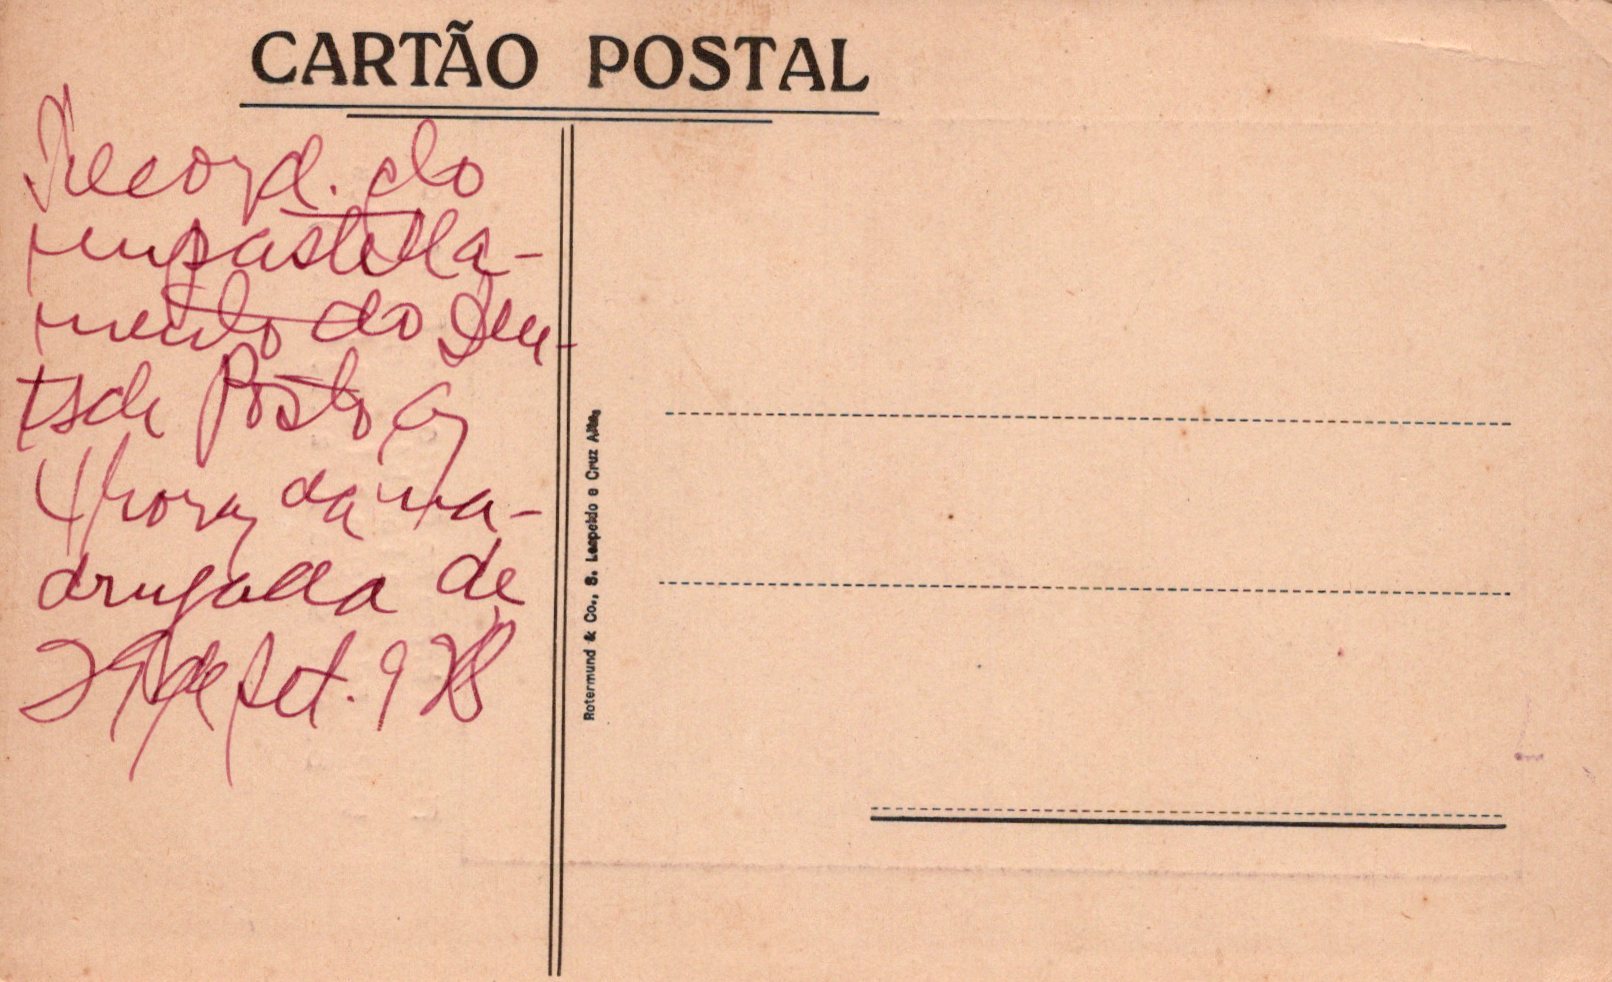 CARTÃO POSTAL
Record. do
empastella-
mento do Deu-
tsch Post
4 horas da ma-
drugada de
29 de Set. 928
Rotermund & Co., S. Leopoldo e Cruz Alta.